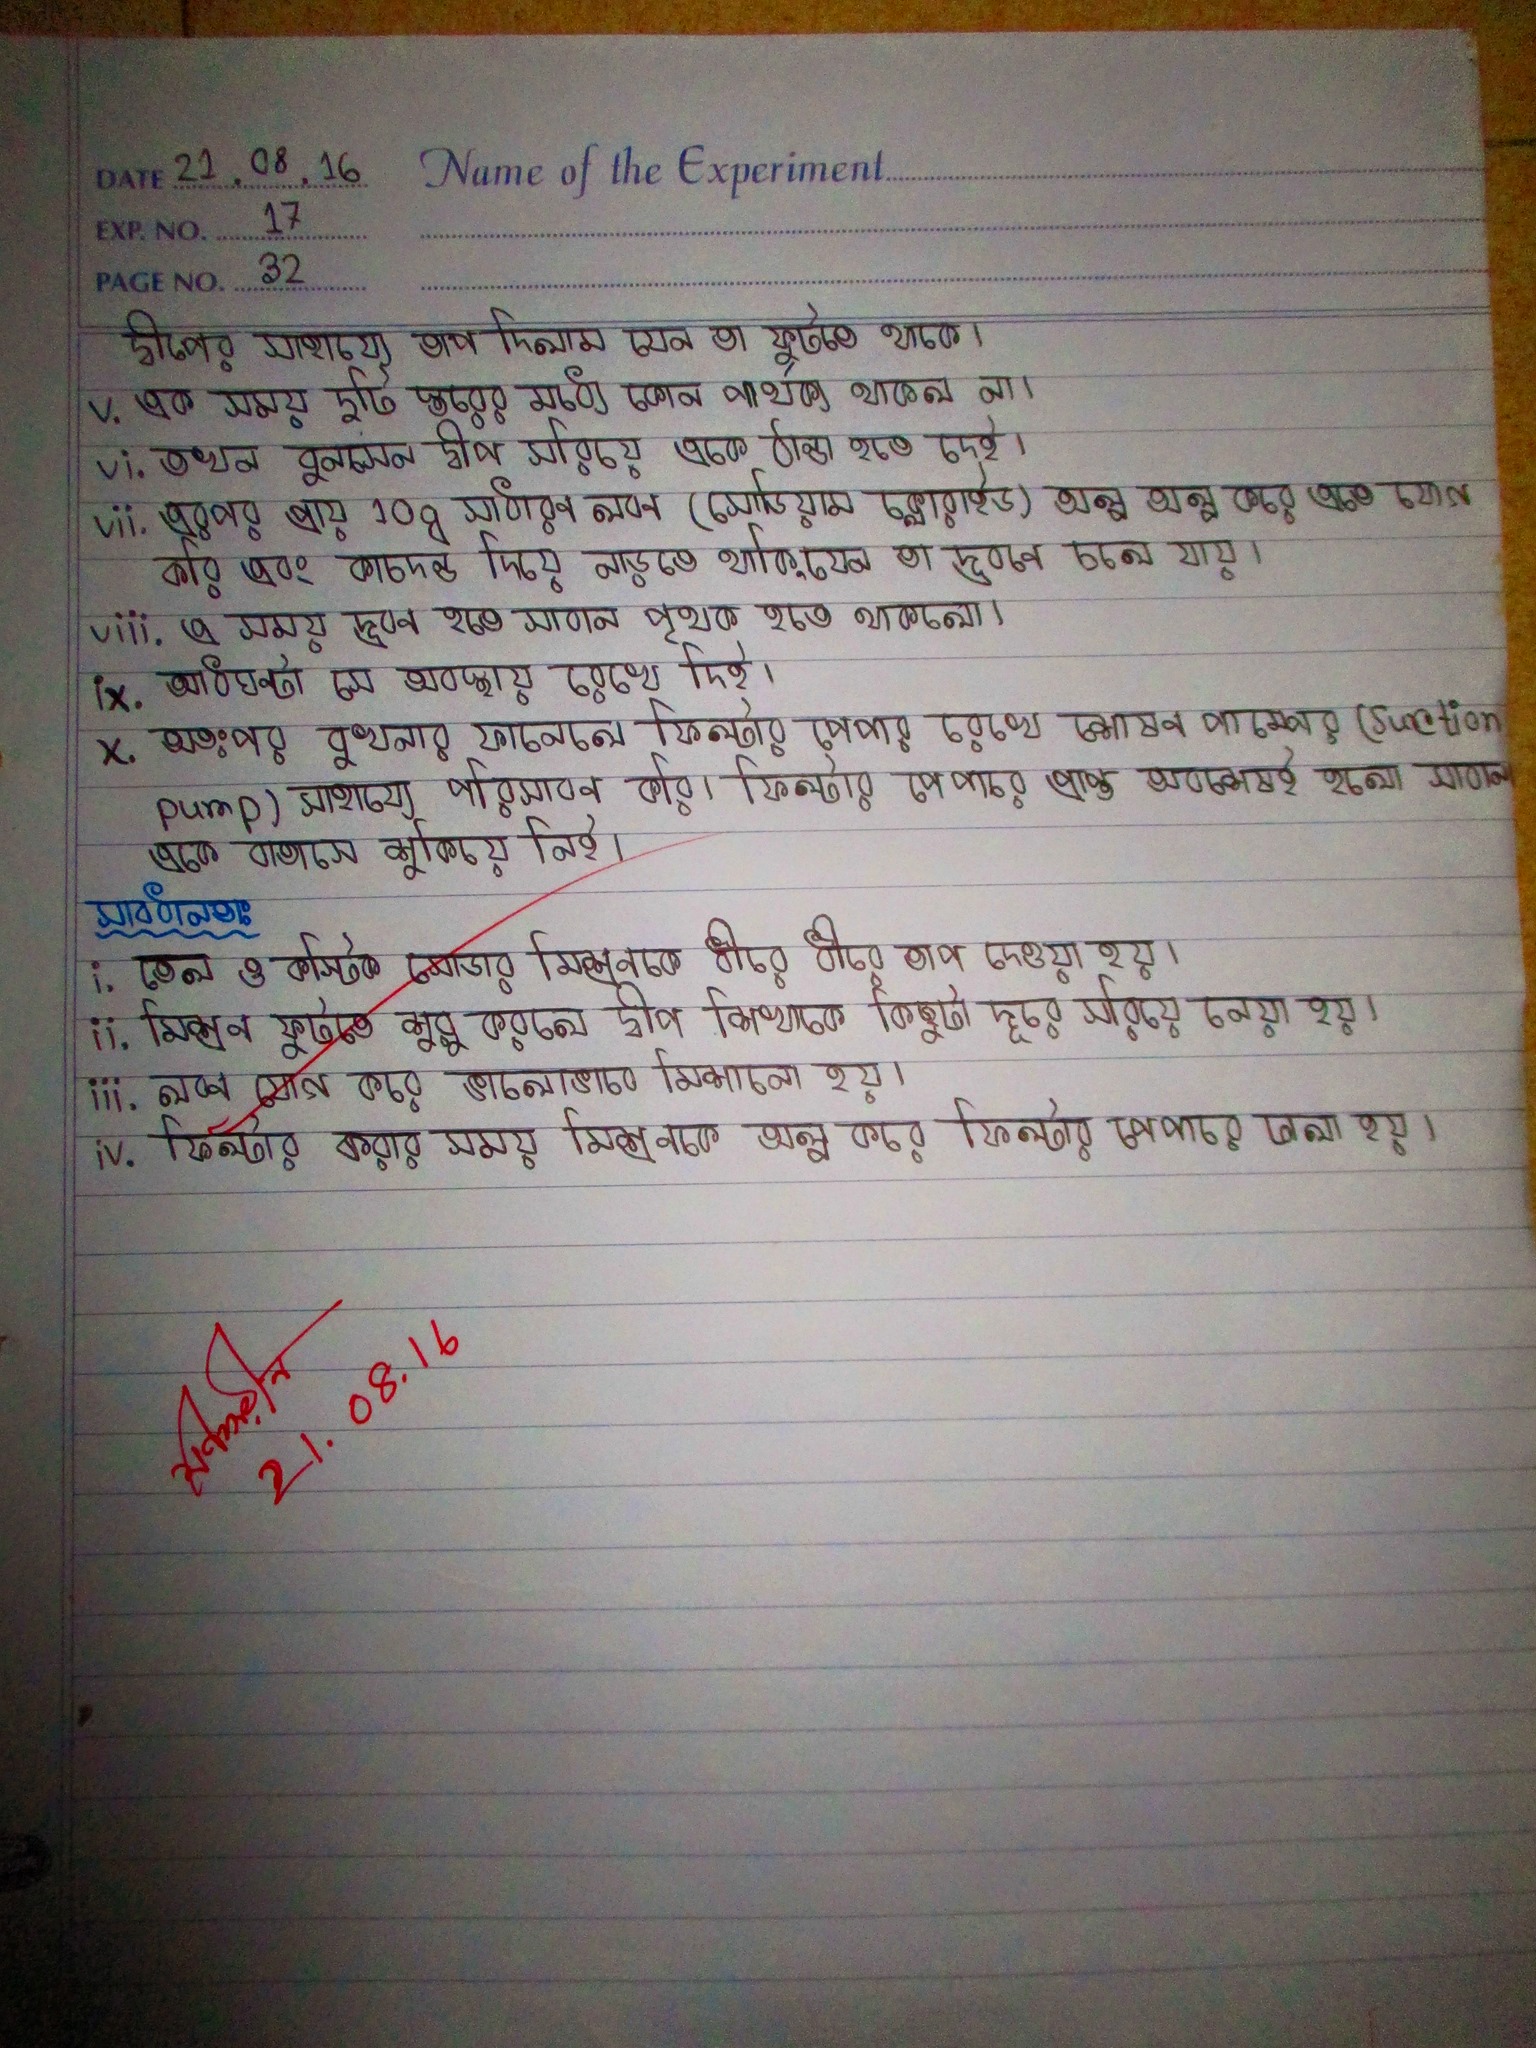 DATE 21.08.16 Name of the Experiment
EXP. NO. 17
PAGE NO. 32
দ্বীপের সাহায্যে তাপ দিলাম যেন তা ফুটতে থাকে।
v. এক সময় দুটি স্তরের মধ্যে কোন পার্থক্য থাকল না।
vi. তখন বুনসেন দ্বীপ সরিয়ে একে ঠান্ডা হতে দেই।
vii. এরপর প্রায় 10g সাধারণ লবণ (সোডিয়াম ক্লোরাইড) অল্প অল্প করে এতে যোগ
করি এবং কাচদন্ড দিয়ে নাড়তে থাকি যেন তা দ্রবণে চলে যায়।
viii. এ সময় দ্রবণ হতে সাবান পৃথক হতে থাকলো।
ix. আধঘন্টা সে অবস্থায় রেখে দিই।
x. অতঃপর বুখনার ফানেলে ফিল্টার পেপার রেখে শোষণ পাম্পের (Suction
pump) সাহায্যে পরিসাবণ করি। ফিল্টার পেপারে প্রাপ্ত অবশেষই হলো সাবান
একে বাতাসে শুকিয়ে নিই।
সাবধানতাঃ
i. তেল ও কস্টিক সোডার মিশ্রণকে ধীরে ধীরে তাপ দেওয়া হয়।
ii. মিশ্রণ ফুটতে শুরু করলে দ্বীপ শিখাকে কিছুটা দূরে সরিয়ে নেয়া হয়।
iii. লবণ যোগ করে ভালোভাবে মিশানো হয়।
iv. ফিল্টার করার সময় মিশ্রণকে অল্প করে ফিল্টার পেপারে ঢালা হয়।
21.08.16